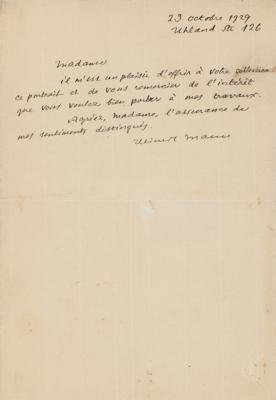 23 octobre 1929
Uhland Str 126
Madame
il m'est un plaisir d'offrir à votre collection
ce portrait et de vous remercier de l'intérêt
que vous voulez bien porter à mes travaux.
Agréez, Madame, l'assurance de
mes sentiments distingués.
Heinrich Mann